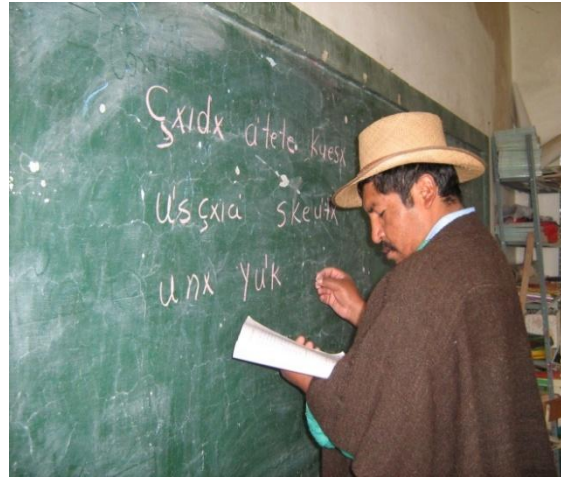 Çxıdx a'tete kyesx
u's çxıa' skeutx
unx yu'k